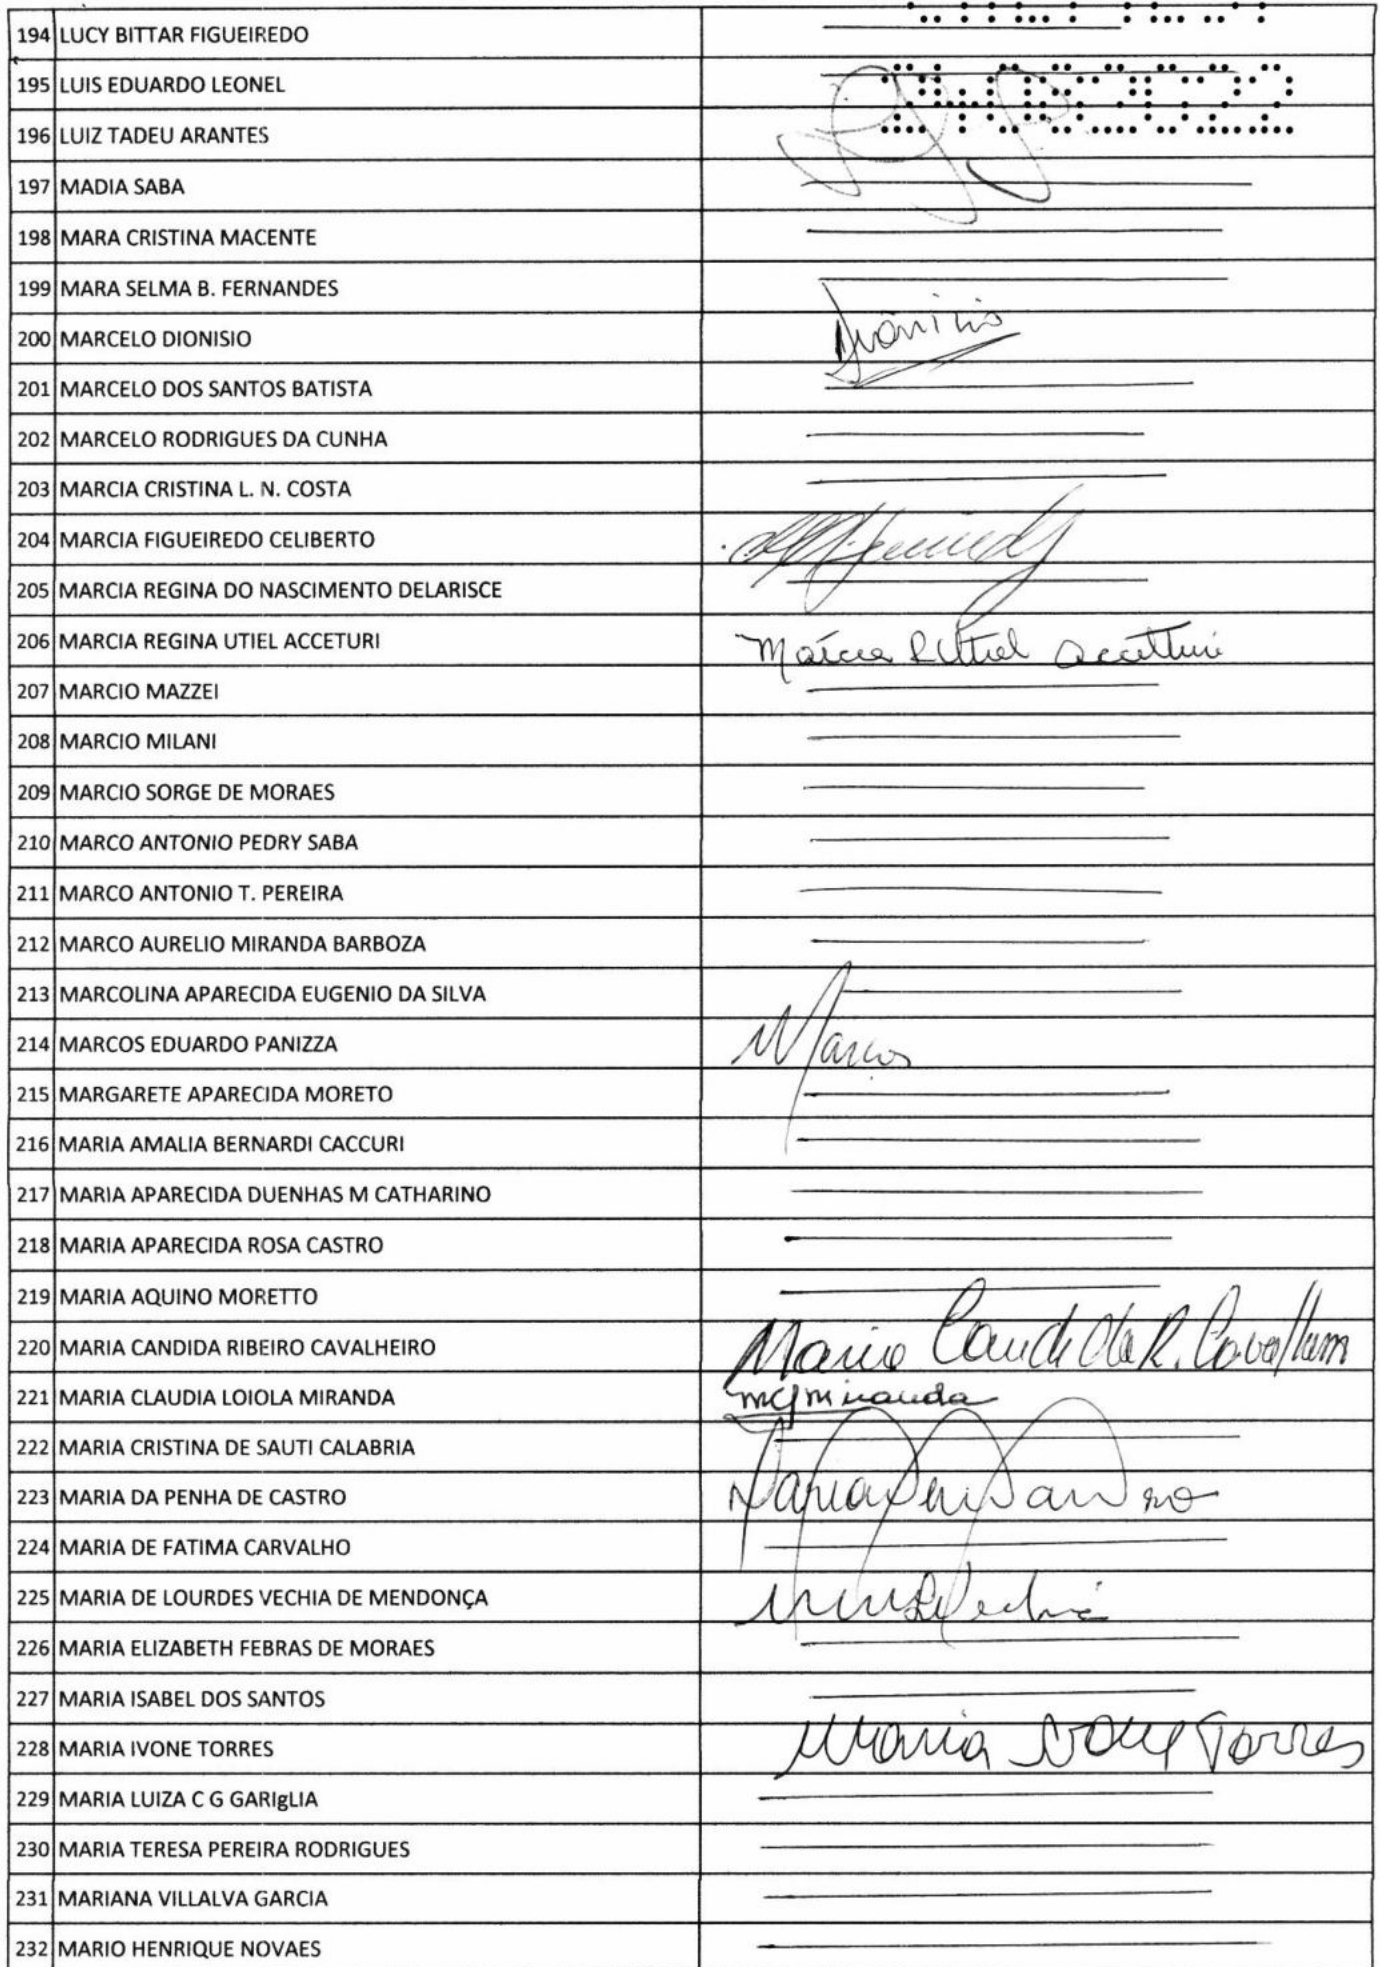 194 LUCY BITTAR FIGUEIREDO
195 LUIS EDUARDO LEONEL
196 LUIZ TADEU ARANTES
197 MADIA SABA
198 MARA CRISTINA MACENTE
199 MARA SELMA B. FERNANDES
200 MARCELO DIONISIO Dionisio
201 MARCELO DOS SANTOS BATISTA
202 MARCELO RODRIGUES DA CUNHA
203 MARCIA CRISTINA L. N. COSTA
204 MARCIA FIGUEIREDO CELIBERTO
205 MARCIA REGINA DO NASCIMENTO DELARISCE
206 MARCIA REGINA UTIEL ACCETURI Márcia R Utiel Accetturi
207 MARCIO MAZZEI
208 MARCIO MILANI
209 MARCIO SORGE DE MORAES
210 MARCO ANTONIO PEDRY SABA
211 MARCO ANTONIO T. PEREIRA
212 MARCO AURELIO MIRANDA BARBOZA
213 MARCOLINA APARECIDA EUGENIO DA SILVA
214 MARCOS EDUARDO PANIZZA Marcos
215 MARGARETE APARECIDA MORETO
216 MARIA AMALIA BERNARDI CACCURI
217 MARIA APARECIDA DUENHAS M CATHARINO
218 MARIA APARECIDA ROSA CASTRO
219 MARIA AQUINO MORETTO
220 MARIA CANDIDA RIBEIRO CAVALHEIRO Maria Candida R.
221 MARIA CLAUDIA LOIOLA MIRANDA mclmiranda
222 MARIA CRISTINA DE SAUTI CALABRIA
223 MARIA DA PENHA DE CASTRO
224 MARIA DE FATIMA CARVALHO
225 MARIA DE LOURDES VECHIA DE MENDONÇA
226 MARIA ELIZABETH FEBRAS DE MORAES
227 MARIA ISABEL DOS SANTOS
228 MARIA IVONE TORRES Maria Ivone Torres
229 MARIA LUIZA C G GARIgLIA
230 MARIA TERESA PEREIRA RODRIGUES
231 MARIANA VILLALVA GARCIA
232 MARIO HENRIQUE NOVAES